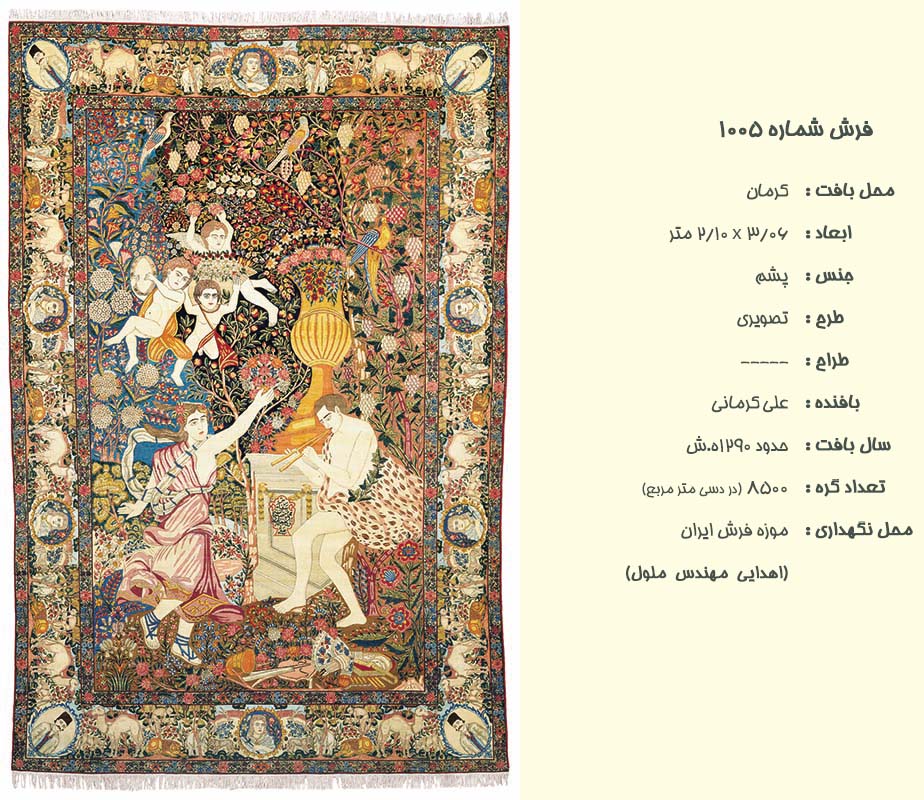 فرش شماره ۱۰۰۵
محل بافت : کرمان
ابعاد : ۳/۰۶ x ۲/۱۰ متر
جنس : پشم
طرح : تصویری
طراح : -----
بافنده : علی کرمانی
سال بافت : حدود ۱۲۹۰ه.ش
تعداد گره : ۸۵۰۰ (در دسی متر مربع)
محل نگهداری : موزه فرش ایران
(اهدایی مهندس ملول)